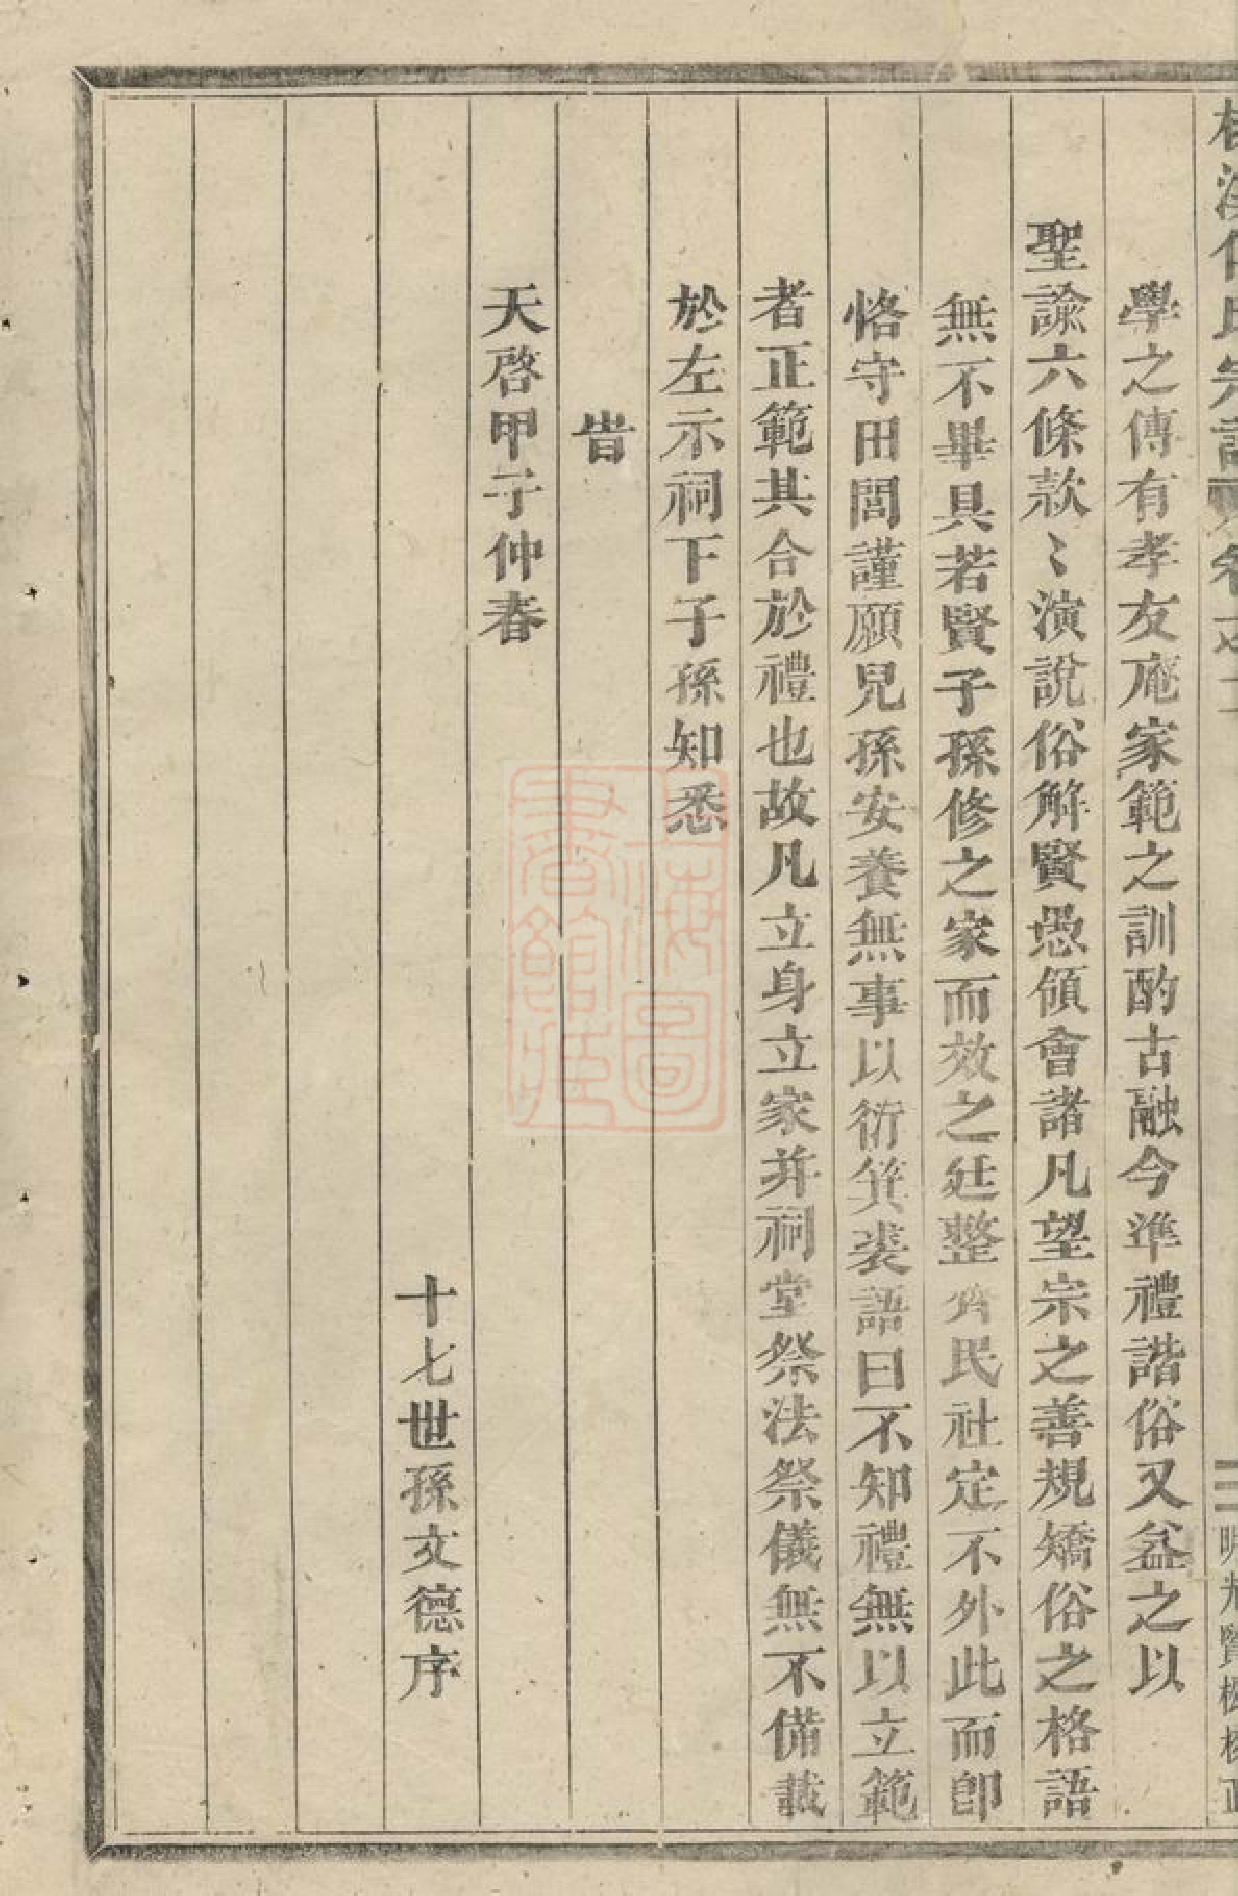 學之傳有孝友庵家範之訓酌古融今準禮諧俗又益之以
聖諭六條款〻演說俗解賢愚領會諸凡望宗之善規矯俗之格語
無不畢具若賢子孫修之家而效之廷整齊民社定不外此而即
恪守田閭謹願兒孫安養無事以衍箕裘語曰不知禮無以立範
者正範其合於禮也故凡立身立家并祠堂祭法祭儀無不備載
於左示祠下子孫知悉
旹
天啓甲子仲春
十七世孫文德序
上海圖書館藏